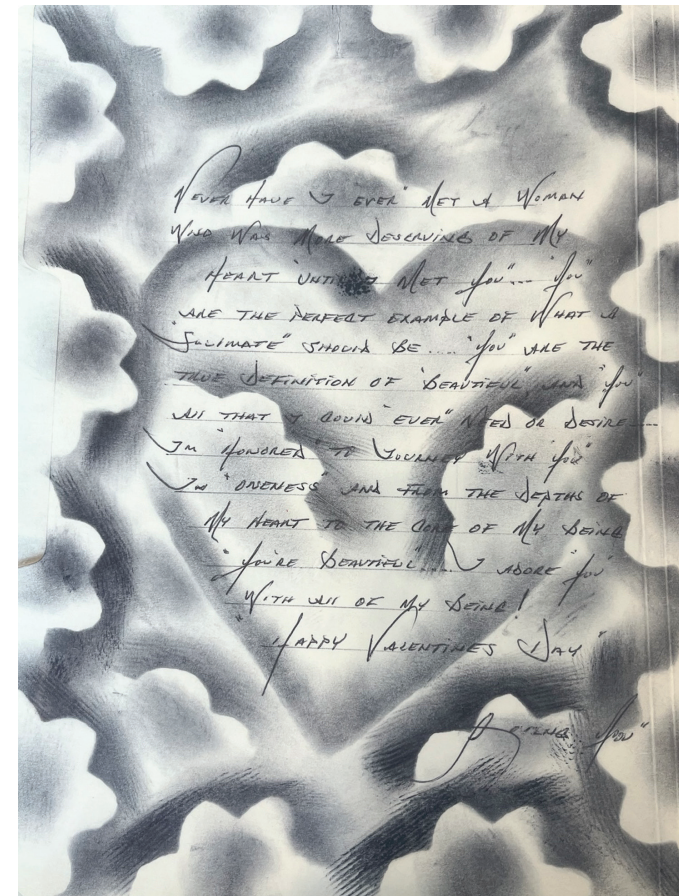 Never Have I "ever" Met A Woman
Who Was More Deserving of My
Heart "until I Met you"... "you"
Are the perfect example of What A
"Soulmate" should be.... "you" are the
true definition of "Beautiful" and "you"
All that I could "ever" Need or desire....
I'm "Honored" to Journey With "you"
In "oneness" and from the depths of
My Heart to the Core of My Being
"you're Beautiful".... I adore "you"
With all of My Being!
"Happy Valentines Day"
"you"